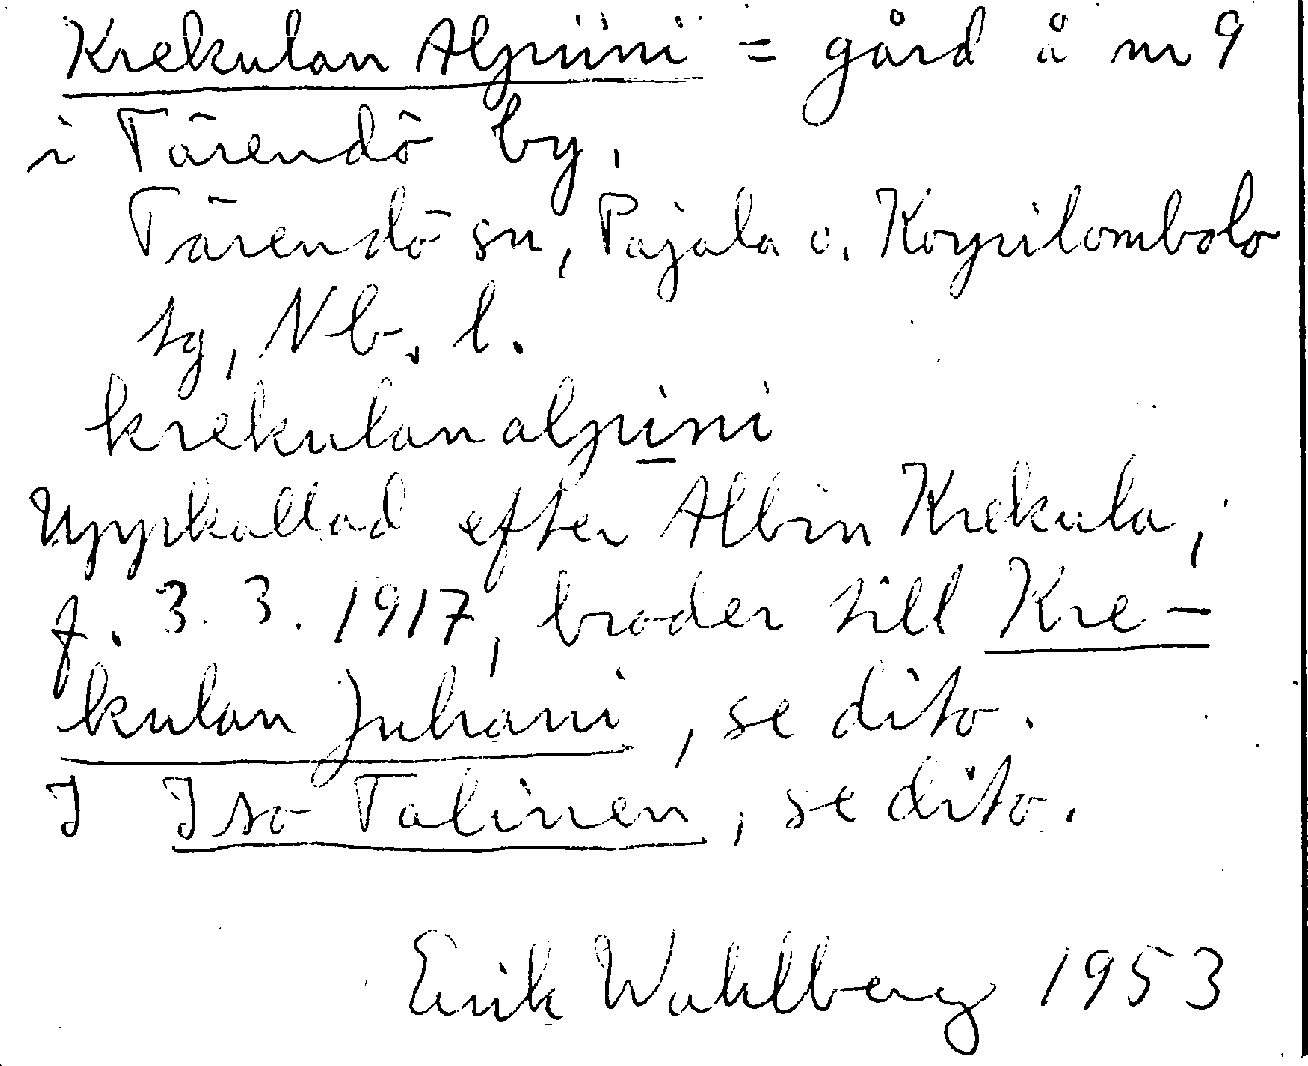 Krekulan Alpiini = gård å nr 9
i Tärendö by,
Tärendö sn, Pajala o. Korpilombolo
tg, Nb. l.
krekulan alpini
Uppkallad efter Albin Krekula,
f. 3. 3. 1917, broder till Kre-
kulan Juhani, se dito.
I Iso Talinen, se dito.
Erik Wahlberg 1953